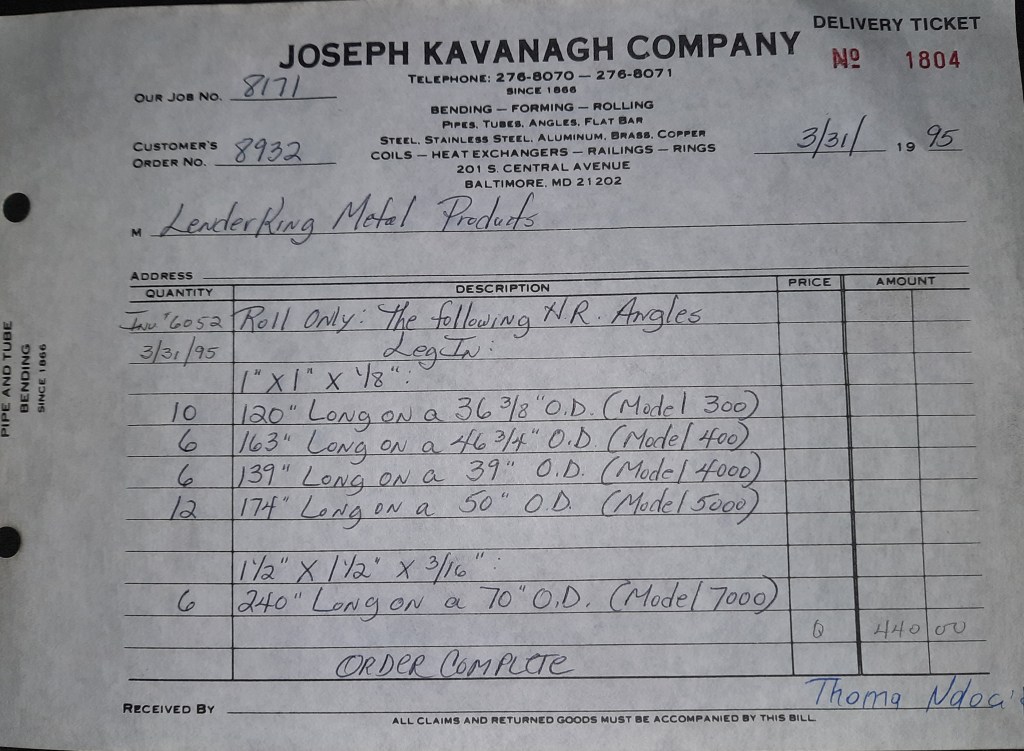 DELIVERY TICKET
JOSEPH KAVANAGH COMPANY
No 1804
TELEPHONE: 276-8070 — 276-8071
SINCE 1866
OUR JOB NO. 8171
BENDING — FORMING — ROLLING
PIPES, TUBES, ANGLES, FLAT BAR
STEEL, STAINLESS STEEL, ALUMINUM, BRASS, COPPER
CUSTOMER'S ORDER NO. 8932
COILS — HEAT EXCHANGERS — RAILINGS — RINGS
3/31/ 1995
201 S. CENTRAL AVENUE
BALTIMORE, MD 21202
M LenderKing Metal Products
ADDRESS
QUANTITY DESCRIPTION PRICE AMOUNT
Inv # 6052 Roll Only: The following H.R. Angles
3/31/95 Leg In:
1" X 1" X 1/8":
10 120" Long on a 36 3/8" O.D. (Model 300)
6 163" Long on a 46 3/4" O.D. (Model 400)
6 139" Long on a 39" O.D. (Model 4000)
12 174" Long on a 50" O.D. (Model 5000)
1 1/2" X 1 1/2" X 3/16":
6 240" Long on a 70" O.D. (Model 7000)
Q 440 00
ORDER COMPLETE
RECEIVED BY Thoma
ALL CLAIMS AND RETURNED GOODS MUST BE ACCOMPANIED BY THIS BILL
PIPE AND TUBE
BENDING
SINCE 1866